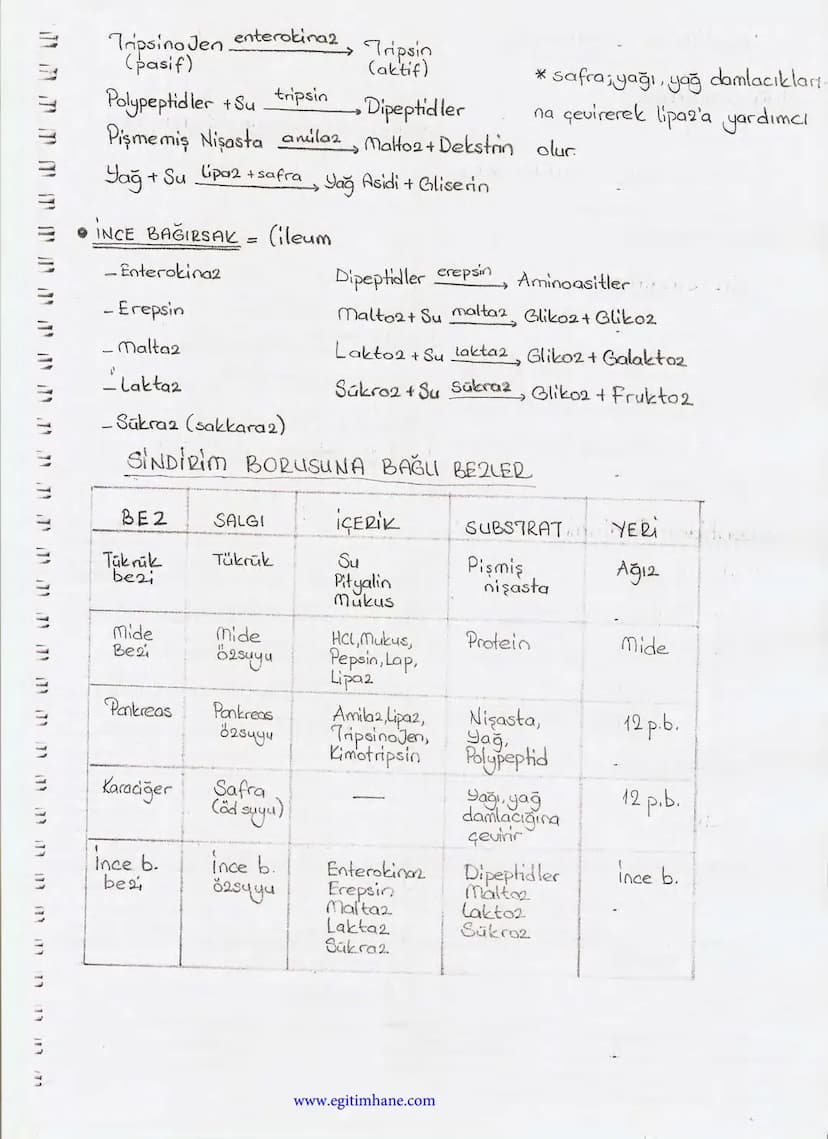 Tripsinojen enterokinaz → Tripsin
(pasif) (aktif)
Polypeptidler + Su tripsin → Dipeptidler
Pişmemiş Nişasta amilaz → Maltoz + Dekstrin
Yağ + Su Lipaz + safra → Yağ Asidi + Gliserin
* safra; yağı, yağ damlacıkları
na çevirerek lipaz'a yardımcı
olur.
• İNCE BAĞIRSAK = (ileum
- Enterokinaz
- Erepsin
- Maltaz
- Laktaz
- Sükraz (sakkaraz)
Dipeptidler erepsin → Aminoasitler
Maltoz + Su maltaz → Glikoz + Glikoz
Laktoz + Su laktaz → Glikoz + Galaktoz
Sükroz + Su Sükraz → Glikoz + Fruktoz
SİNDİRİM BORUSUNA BAĞLI BEZLER
BEZ SALGI İÇERİK SUBSTRAT YERİ
Tükrük bezi Tükrük Su Pityalin Mukus Pişmiş nişasta Ağız
Mide Bezi Mide özsuyu HCl, Mukus, Pepsin, Lap, Lipaz Protein Mide
Pankreas Pankreas özsuyu Amilaz, Lipaz, Tripsinojen, Kimotripsin Nişasta, Yağ, Polypeptid 12 p.b.
Karaciğer Safra (öd suyu) — Yağı, yağ damlacığına çevirir 12 p.b.
İnce b. bezi İnce b. özsuyu Enterokinaz Erepsin Maltaz Laktaz Sükraz Dipeptidler Maltoz Laktoz Sükroz İnce b.
www.egitimhane.com